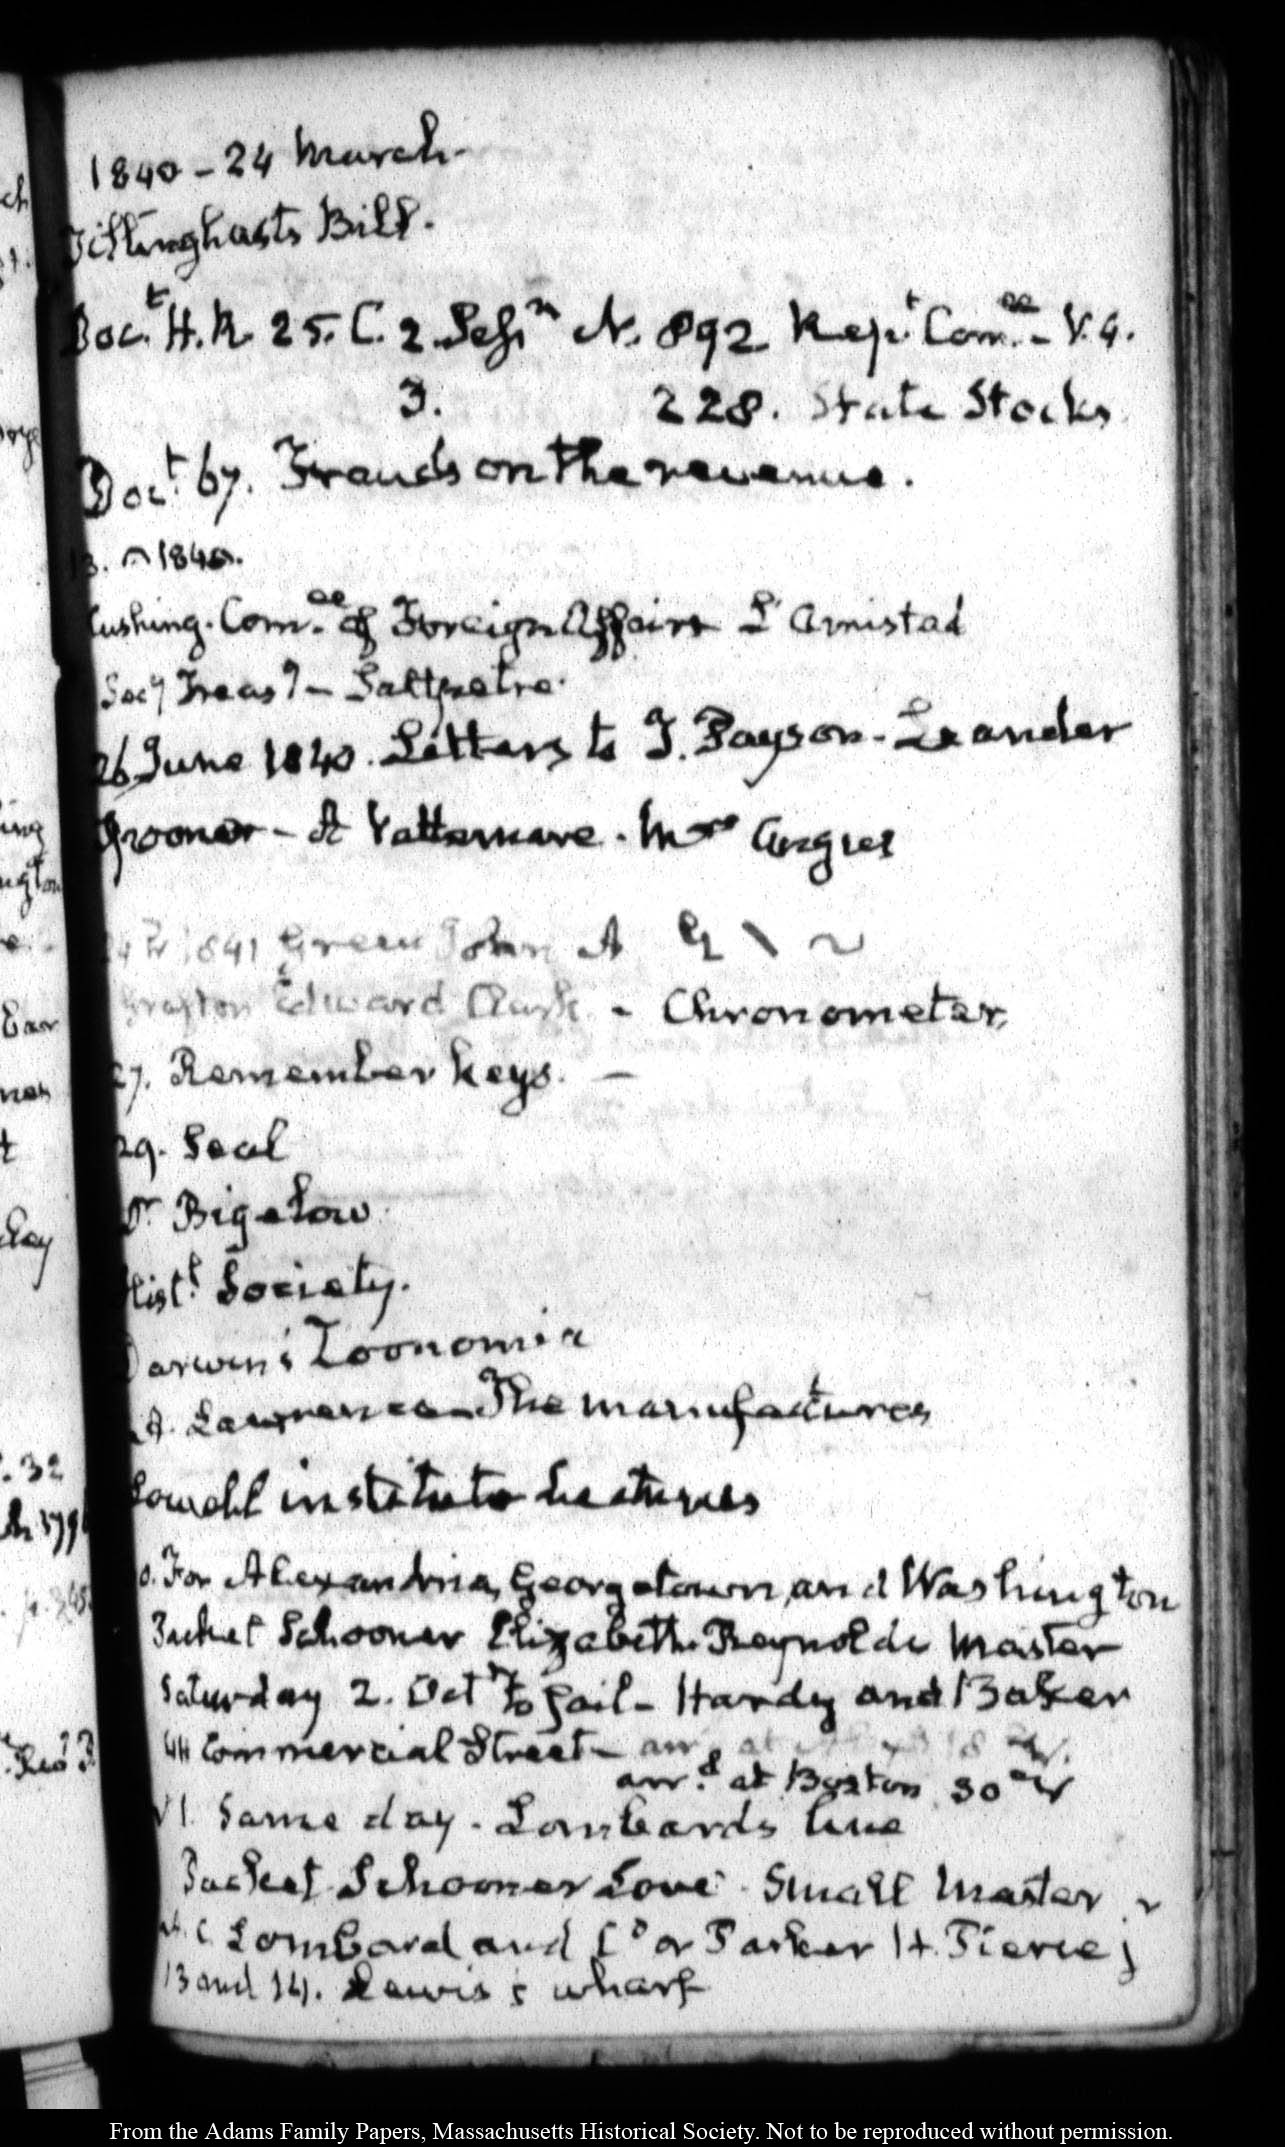 1840 - 24 March.
Tillinghasts Bill.
Doc.t H.R. 25. C. 2. Sessn N. 892 Rep.t Com.ee - V. 4.
3. 228. State Stocks
Doc.t 67. Frauds on the revenue.
13. 1840.
Cushing. Com.ee of Foreign Affairs L'Amistad
Secy Treasy - Saltpetre.
26 June 1840. Letters to J. Payson - Leander
- A Vattemare. Mrs Angier
24 1841 Green John A
Grafton Edward Clark - Chronometer,
27. Remember keys. -
29. Seal
Dr Bigelow
Hist.l Society.
Darwin's Zoonomia
A. Lawrence - The manufactures
Lowell institute Lectures
For Alexandria, Georgetown, and Washington
Packet Schooner Elizabeth. Reynolds Master
Saturday 2. Oct To sail - Hardy and Baker
44 Commercial Street - arr. at 18
arr.d at Boston 30
Same day. Lombards line
Packet Schooner Love. Small Master
Lombard and Co or Parker H. Pierce j
13 and 14. Lewis's wharf
From the Adams Family Papers, Massachusetts Historical Society. Not to be reproduced without permission.